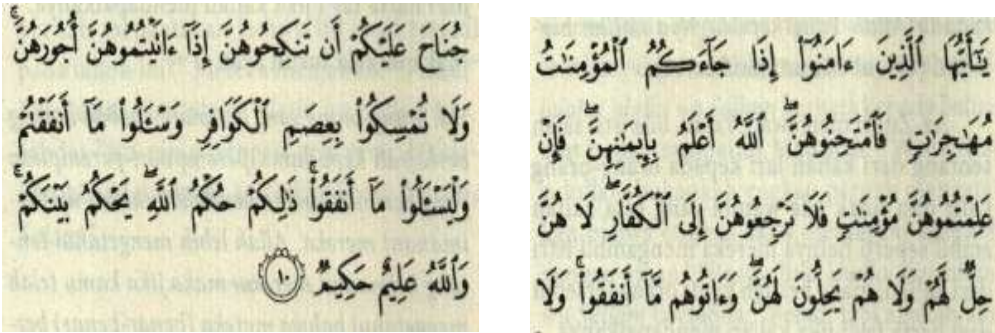 يَٰٓأَيُّهَا ٱلَّذِينَ ءَامَنُوٓا۟ إِذَا جَآءَكُمُ ٱلْمُؤْمِنَٰتُ
مُهَٰجِرَٰتٍ فَٱمْتَحِنُوهُنَّ ۖ ٱللَّهُ أَعْلَمُ بِإِيمَٰنِهِنَّ ۖ فَإِنْ
عَلِمْتُمُوهُنَّ مُؤْمِنَٰتٍ فَلَا تَرْجِعُوهُنَّ إِلَى ٱلْكُفَّارِ ۖ لَا هُنَّ
حِلٌّ لَّهُمْ وَلَا هُمْ يَحِلُّونَ لَهُنَّ ۖ وَءَاتُوهُم مَّآ أَنفَقُوا۟ ۚ وَلَا
جُنَاحَ عَلَيْكُمْ أَن تَنكِحُوهُنَّ إِذَآ ءَاتَيْتُمُوهُنَّ أُجُورَهُنَّ ۚ
وَلَا تُمْسِكُوا۟ بِعِصَمِ ٱلْكَوَافِرِ وَسْـَٔلُوا۟ مَآ أَنفَقْتُمْ
وَلْيَسْـَٔلُوا۟ مَآ أَنفَقُوا۟ ۚ ذَٰلِكُمْ حُكْمُ ٱللَّهِ ۖ يَحْكُمُ بَيْنَكُمْ ۚ
وَٱللَّهُ عَلِيمٌ حَكِيمٌ ۝١٠